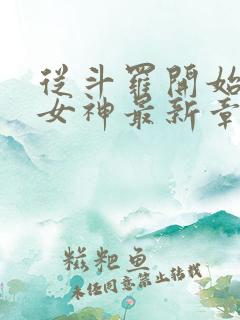 從斗羅開始
女神最新章
糍粑鱼
未经同意禁止转载